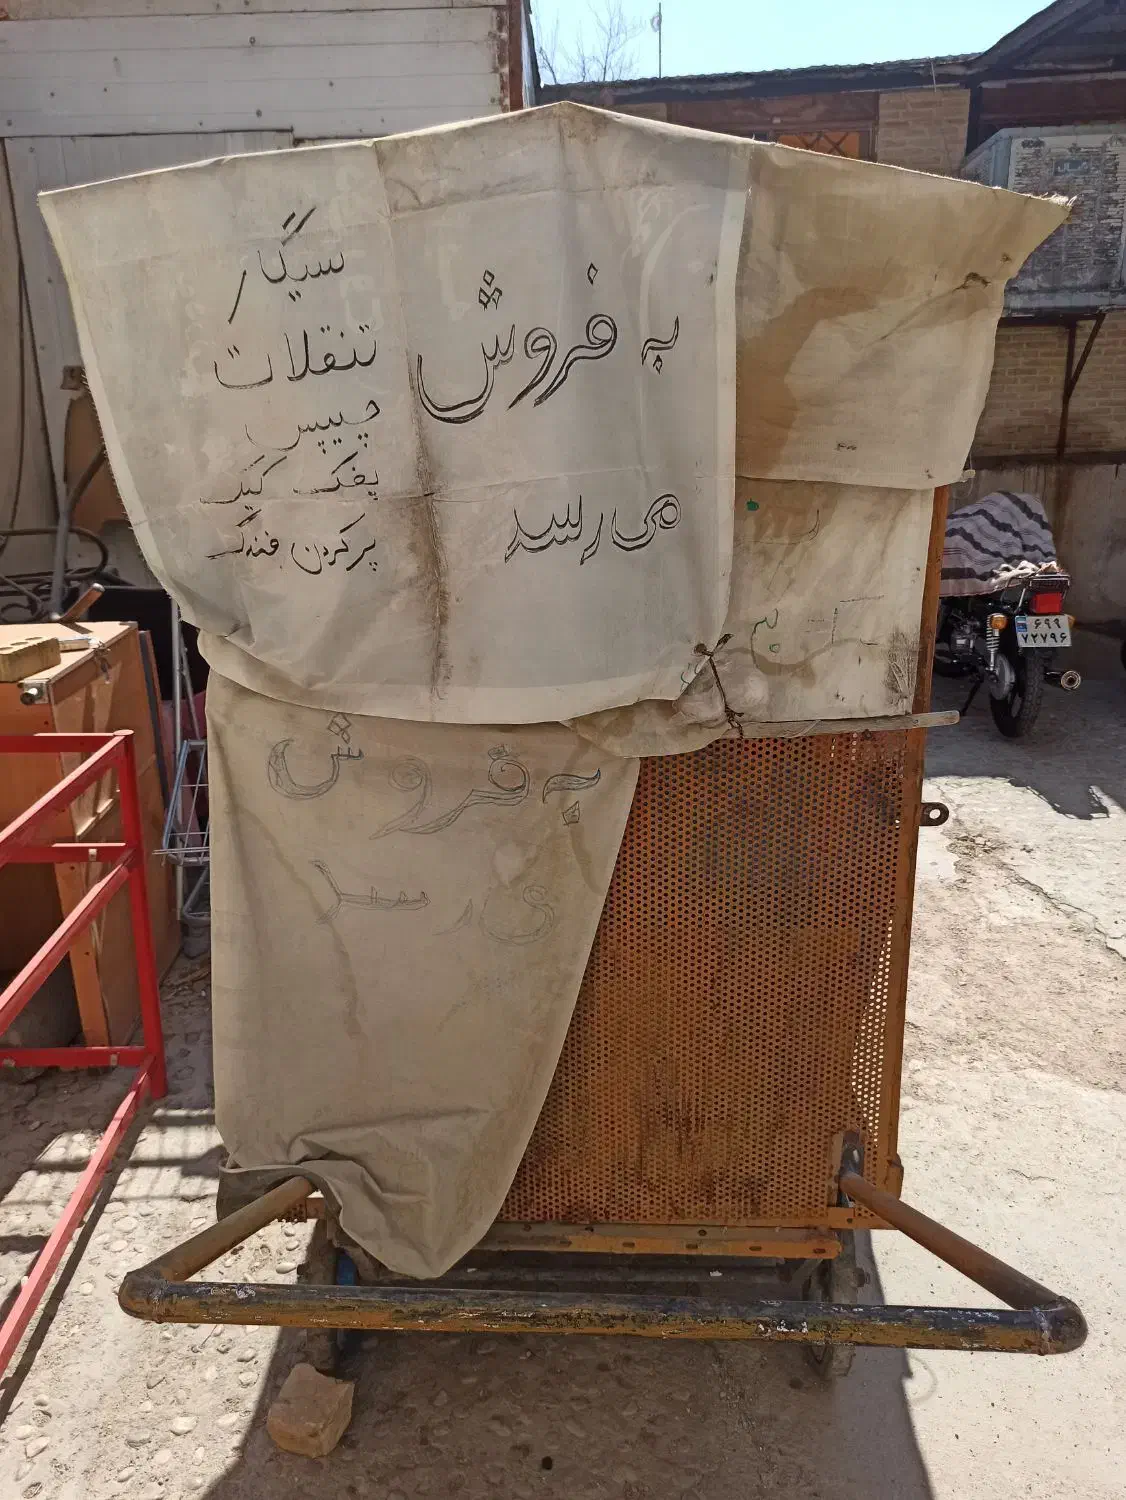 به فروش
می رسد
سیگار
تنقلات
چیپس
پفک کیک
پر کردن فندک
به فروش
ی رسد
۶۹۹
۷۲۷۹۶